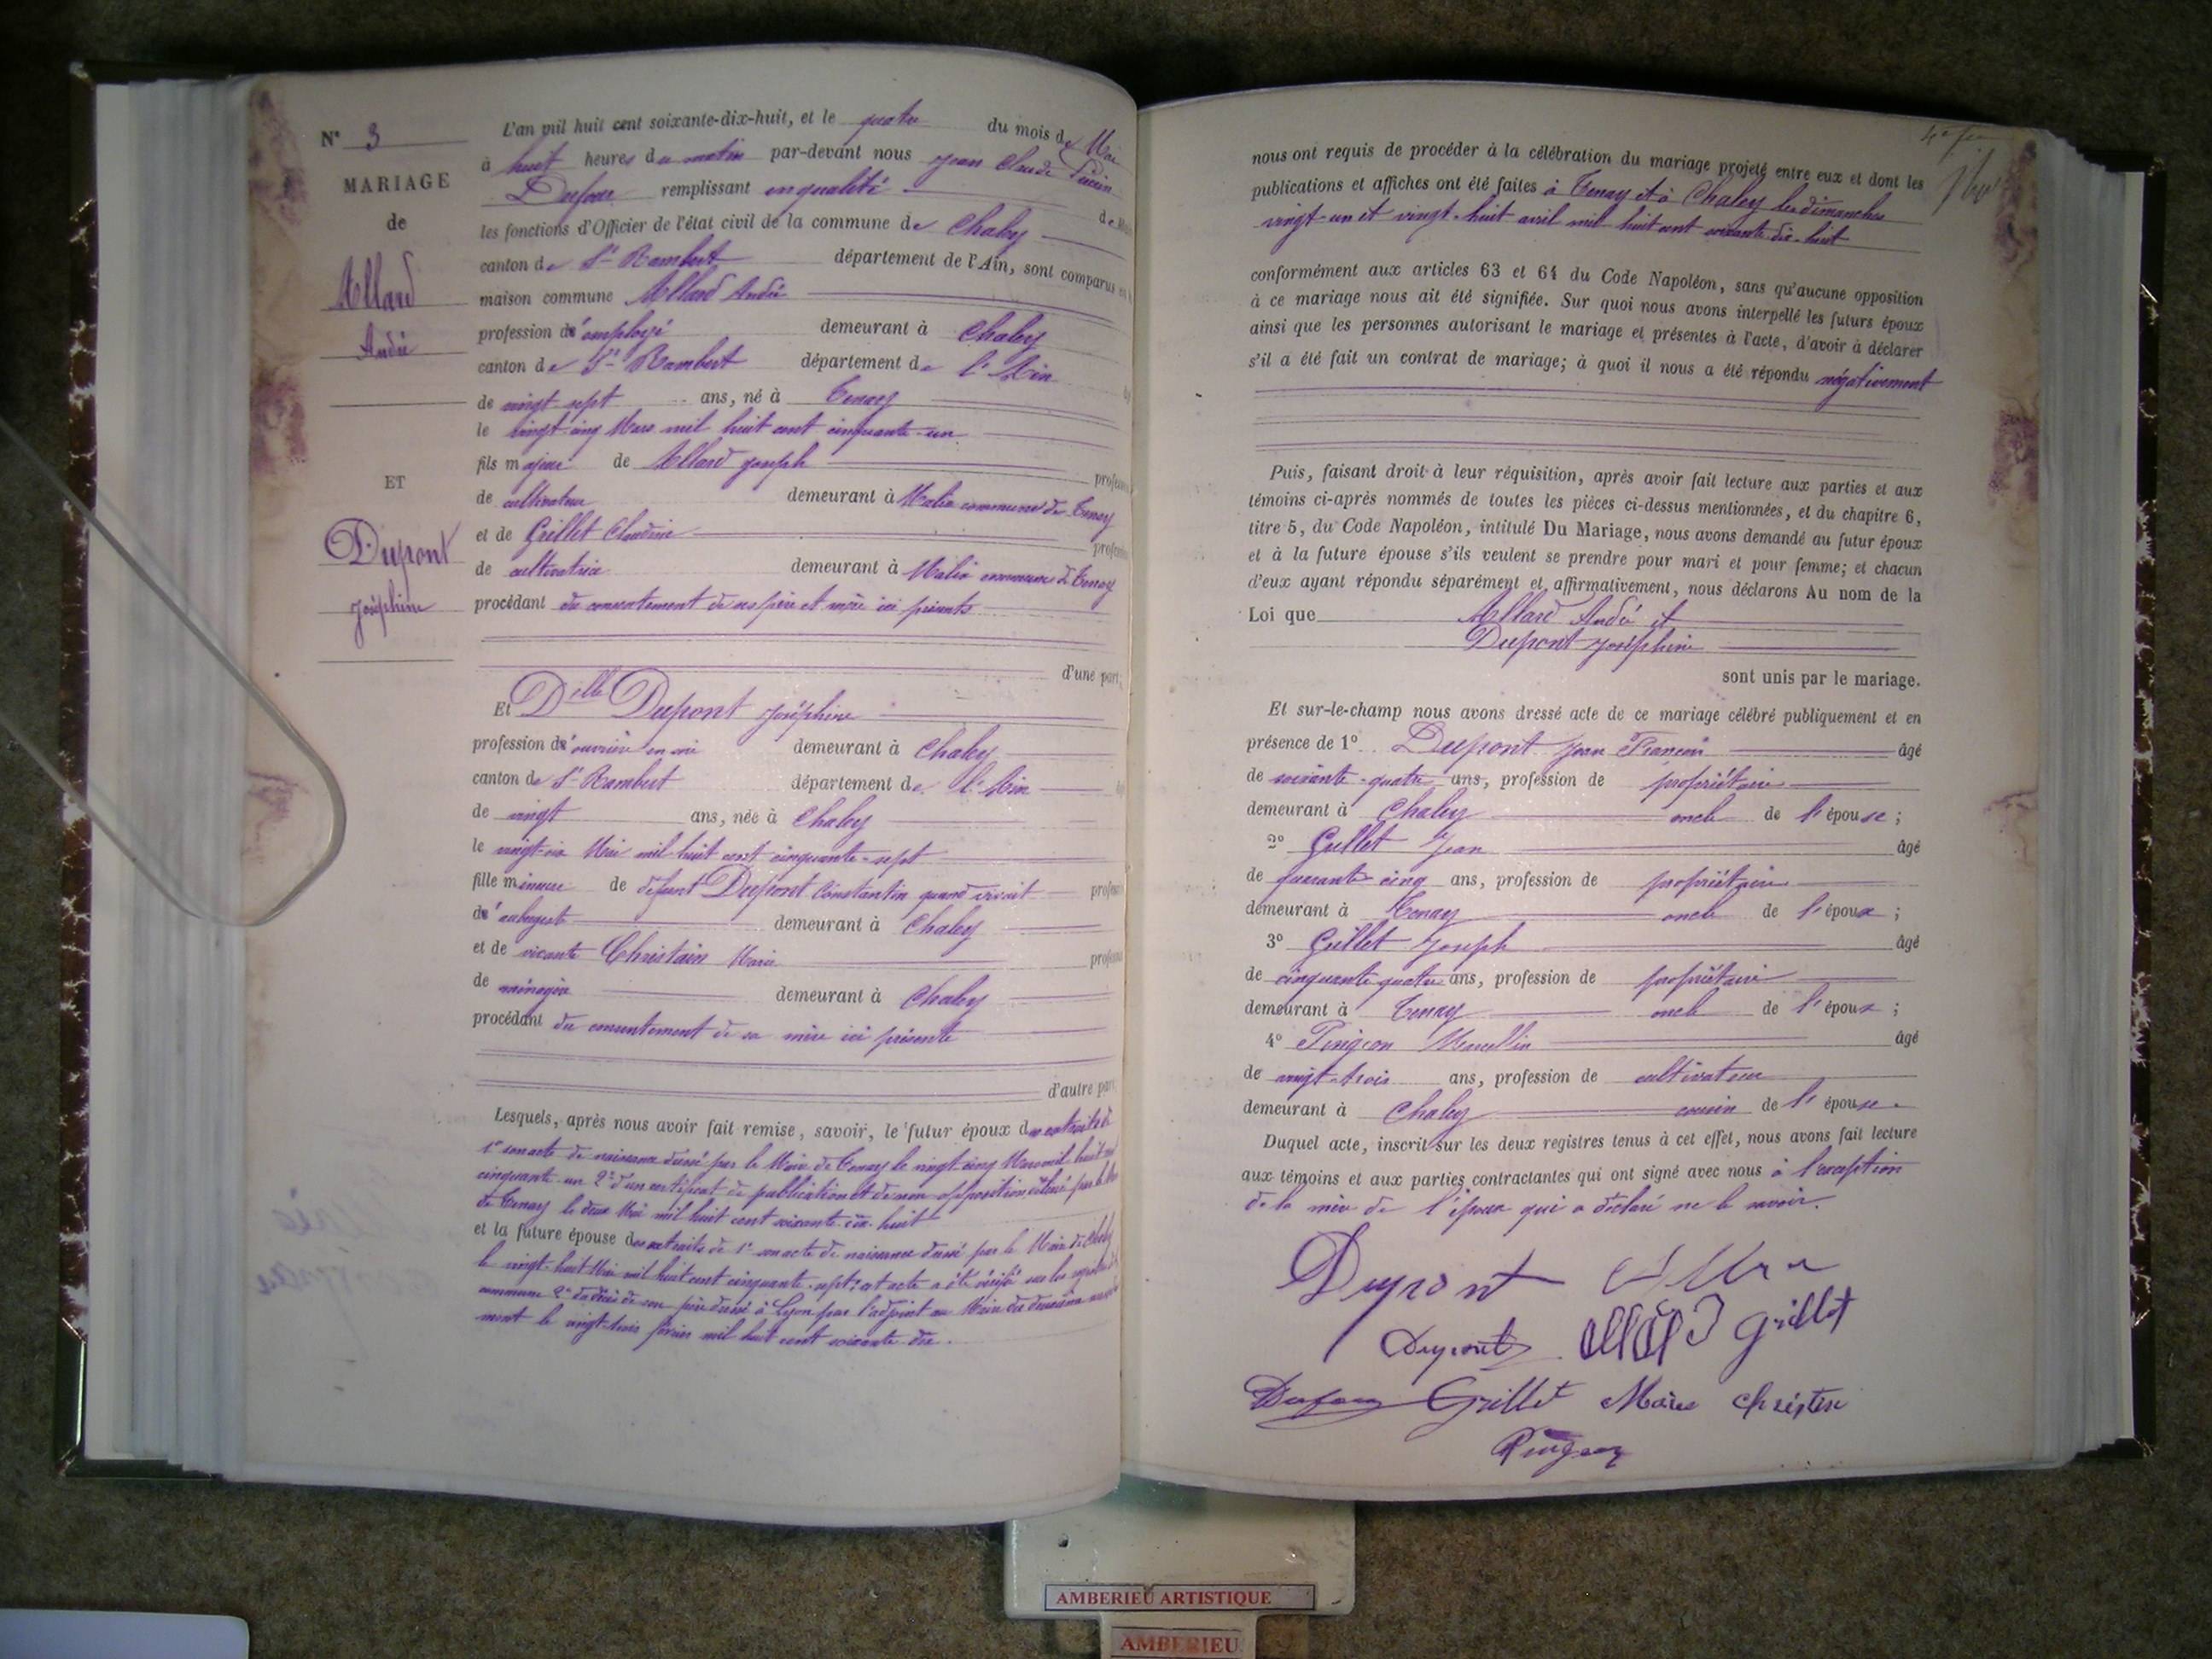 N° 3
MARIAGE
de
Allard
André
ET
Dupont
Joséphine
L'an mil huit cent soixante-dix-huit, et le quatre du mois de Mai
à huit heures du matin par-devant nous Jean Claude
Dufour remplissant en qualité
les fonctions d'Officier de l'état civil de la commune de Chaley
canton de St Rambert département de l'Ain, sont comparus
maison commune Allard André
profession d'employé demeurant à Chaley
canton de St Rambert département de l'Ain
de vingt-sept ans, né à Tenay
le vingt-cinq Mars mil huit cent cinquante-un
fils majeur de Allard Joseph
de cultivateur demeurant à Malix commune de Tenay
et de Grillet Claudine
de cultivatrice demeurant à Malix commune de Tenay
procédant du consentement de ses père et mère ici présents
d'une part,
Et Delle Dupont Joséphine
profession d'ouvrière en soie demeurant à Chaley
canton de St Rambert département de l'Ain
de vingt ans, née à Chaley
le vingt-six Mai mil huit cent cinquante-sept
fille mineure de défunt Dupont Constantin quand vivait
d'aubergiste demeurant à Chaley
et de vivante Christain Marie
de ménagère demeurant à Chaley
procédant du consentement de sa mère ici présente
d'autre part
Lesquels, après nous avoir fait remise, savoir, le futur époux des extraits de
1° son acte de naissance dressé par le Maire de Tenay le vingt-cinq Mars mil huit cent
cinquante-un 2° d'un certificat de publication et de non-opposition délivré par le Maire
de Tenay le deux Mai mil huit cent soixante-dix-huit
et la future épouse des extraits de 1° son acte de naissance dressé par le Maire de Chaley
le vingt-huit Mai mil huit cent cinquante-sept; cet acte a été vérifié sur les registres de la
commune 2° du décès de son père dressé à Lyon par l'adjoint au Maire du deuxième arrondisse
ment le vingt-trois février mil huit cent soixante-dix.
nous ont requis de procéder à la célébration du mariage projeté entre eux et dont les
publications et affiches ont été faites à Tenay et à Chaley les dimanches
vingt-un et vingt-huit avril mil huit cent soixante-dix-huit
conformément aux articles 63 et 64 du Code Napoléon, sans qu'aucune opposition
à ce mariage nous ait été signifiée. Sur quoi nous avons interpellé les futurs époux
ainsi que les personnes autorisant le mariage et présentes à l'acte, d'avoir à déclarer
s'il a été fait un contrat de mariage; à quoi il nous a été répondu négativement
Puis, faisant droit à leur réquisition, après avoir fait lecture aux parties et aux
témoins ci-après nommés de toutes les pièces ci-dessus mentionnées, et du chapitre 6,
titre 5, du Code Napoléon, intitulé Du Mariage, nous avons demandé au futur époux
et à la future épouse s'ils veulent se prendre pour mari et pour femme; et chacun
d'eux ayant répondu séparément et affirmativement, nous déclarons Au nom de la
Loi que Allard André et
Dupont Joséphine
sont unis par le mariage.
Et sur-le-champ nous avons dressé acte de ce mariage célébré publiquement et en
présence de 1° Dupont Jean François âgé
de soixante-quatre ans, profession de propriétaire
demeurant à Chaley oncle de l'épouse;
2° Grillet Jean âgé
de quarante-cinq ans, profession de propriétaire
demeurant à Tenay oncle de l'époux;
3° Grillet Joseph âgé
de cinquante-quatre ans, profession de propriétaire
demeurant à Tenay oncle de l'époux;
4° Pingeon Marcellin âgé
de vingt-trois ans, profession de cultivateur
demeurant à Chaley cousin de l'épouse.
Duquel acte, inscrit sur les deux registres tenus à cet effet, nous avons fait lecture
aux témoins et aux parties contractantes qui ont signé avec nous à l'exception
de la mère de l'époux qui a déclaré ne le savoir.
Dupont
Dupont Grillet
Dufour Grillet Marie Christin
Pingeon
AMBERIEU ARTISTIQUE
AMBERIEU